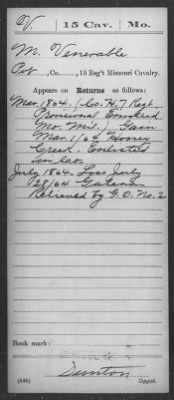 V. 15 Cav. Mo.
M. Venerable
Pvt, Co. , 15 Reg't Missouri Cavalry.
Appears on Returns as follows:
Mar. 1864. (Co. H, 7 Regt.
Provisional Enrolled
Mo. Mil.) Gain
Mar. 1/64
Creek. Enlisted
July 1864. Loss July
28/64
Relieved by G.O. No. 2
Book mark:
Dunton
(546) Copyist.